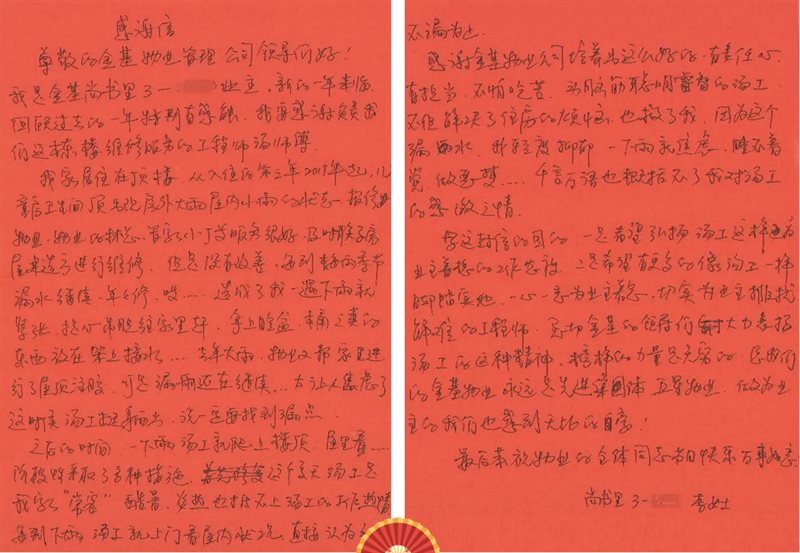 感谢信
尊敬的金基物业管理公司领导们好！
我是金基尚书里3-. 业主，新的一年来临
回顾过去的一年特别有感触，我要感谢负责我
们这栋楼维修服务的工程师汤师傅
我家居住在顶楼，从入住后第三年2015年起，儿
童房卫生间顶出现屋外大雨屋内小雨的状态一报修
物业，物业的林总、首家小丁等服务很好，及时联系房
屋来进行维修，但是没有改善，每到春雨季节
漏水继续，年年修，唉……造成了我一遇下雨就
紧张，提心吊胆往家里奔，拿上脸盆、桶之类的
东西放在架上接水……去年大雨，物业又帮家里进
行了屋顶注胶，可是漏雨还在继续……太让人焦虑了
这时候汤工挺身而出，说一定要找到漏点。
之后的时间，一下雨汤工就爬上楼顶，屋里看……
阶段性采取了各种措施，这个夏天汤工是
我家“常客”酷暑、炎热也挡不上汤工的工作热情
每到下雨汤工就上门看屋内状况，直接认为
不漏为止.
感谢金基物业公司培养出这么好的，有责任心
有担当、不怕吃苦、头脑聪明睿智的汤工
不但解决了住房的烦恼，也救了我，因为这个
漏雨水，我轻度抑郁，一下雨就焦虑，睡不着
觉，做恶梦……千言万语也概括不了我对汤工
的感激之情.
写这封信的目的，一是希望弘扬汤工这样为
业主着想的工作态度，二是希望有更多的像汤工一样
脚踏实地，一心一意为业主着想，切实为业主排忧
解难的工程师，恳切金基的领导们大力表扬
汤工的这种精神，榜样的力量是无穷的，愿我们
的金基物业永远是先进集团体、五星物业，做为业
主的我们也感到无比的自豪！
最后恭祝物业的全体同志节日快乐万事如意
尚书里3- 李女士